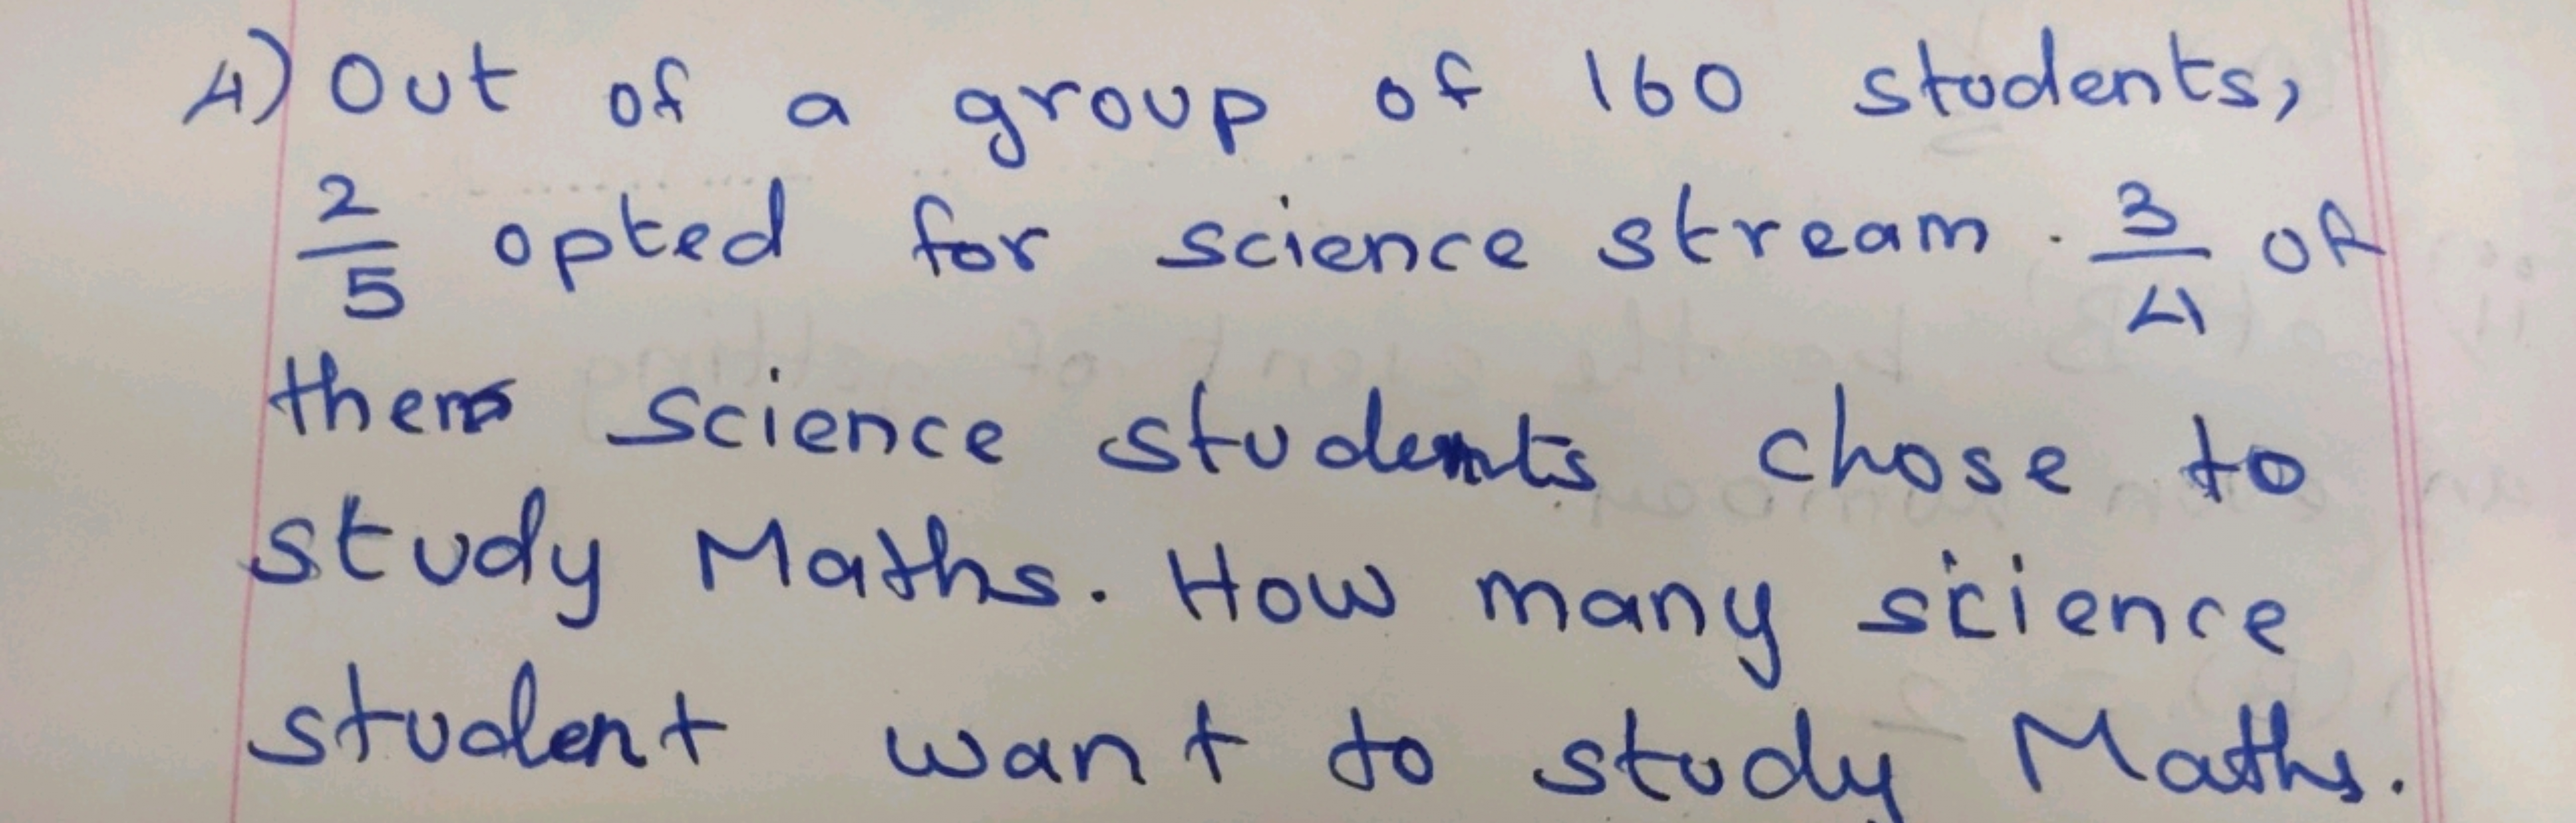 4) Out of a group of 160 students,
2/5 opted for science stream. 3/4 of
them science students chose to
study Maths. How many science
student want to study Maths.